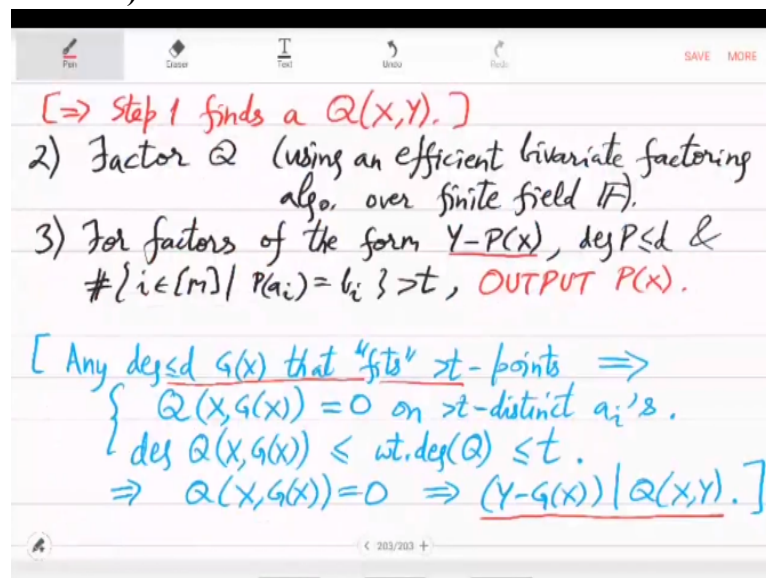 Pen Eraser Text Undo Redo SAVE MORE
[⇒ Step 1 finds a Q(X,Y).]
2) Factor Q (using an efficient bivariate factoring
algo. over finite field 𝔽).
3) For factors of the form Y-P(X), deg P≤d &
#{i∈[m] | P(aᵢ) = bᵢ} >t, OUTPUT P(x).
[Any deg≤d G(x) that "fits" >t-points ⇒
{ Q(X,G(X)) = 0 on >t-distinct aᵢ's.
deg Q(X,G(X)) ≤ wt.deg(Q) ≤ t.
⇒ Q(X,G(X))=0 ⇒ (Y-G(X)) | Q(X,Y).]
< 203/203 +